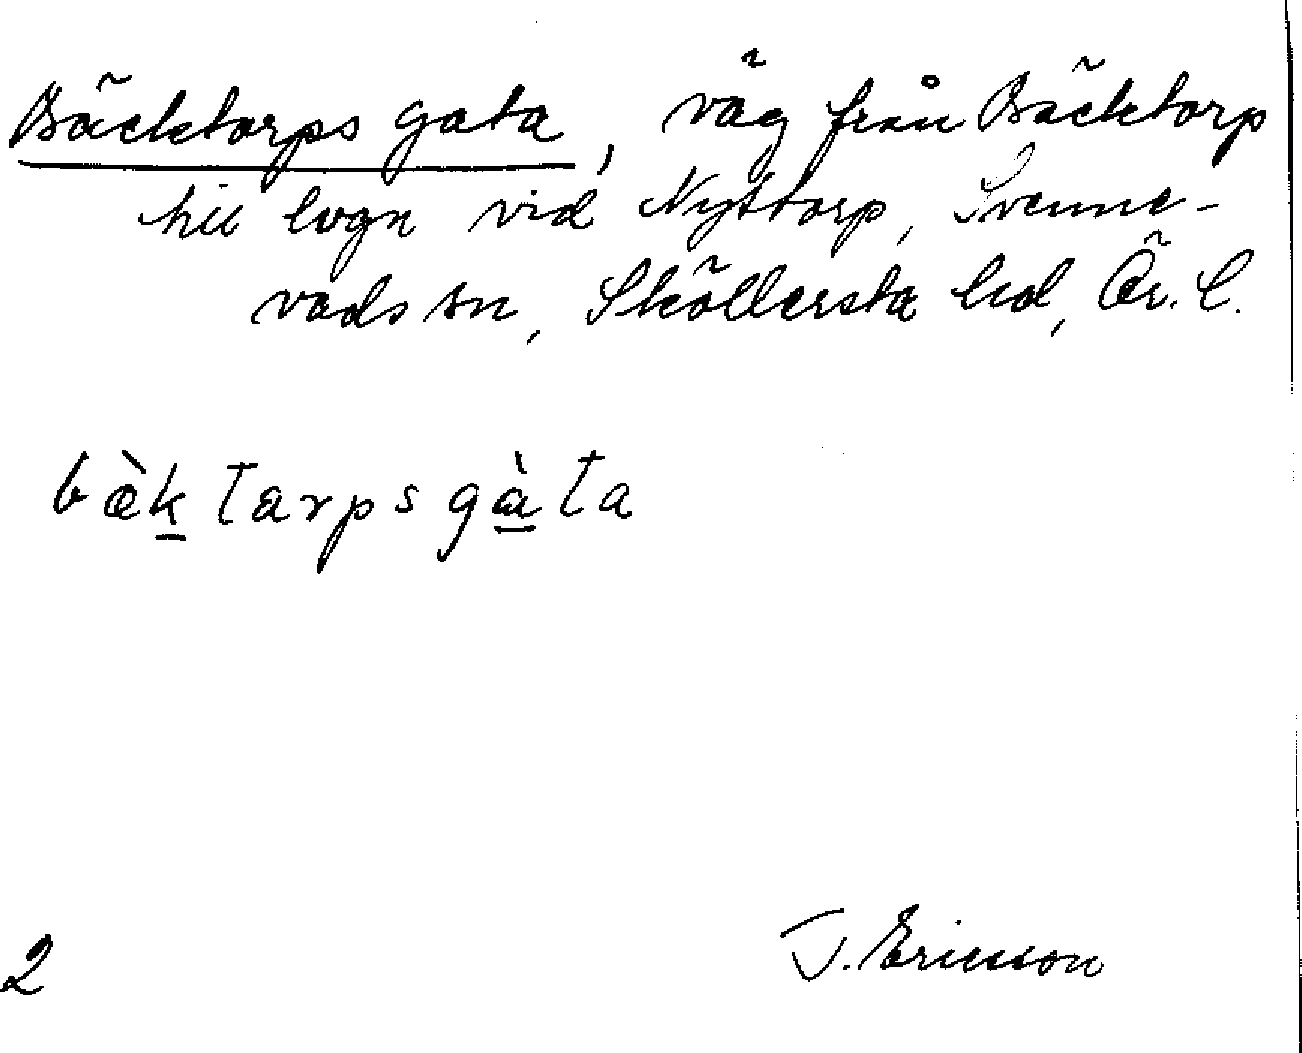 Bäcktorps gata, väg från Bäcktorp
till logn vid Nyttorp, Svenne-
vads sn, Sköllersta hd, Ör. l.
bæ̀k tarpsgàta
2
J. Ericsson